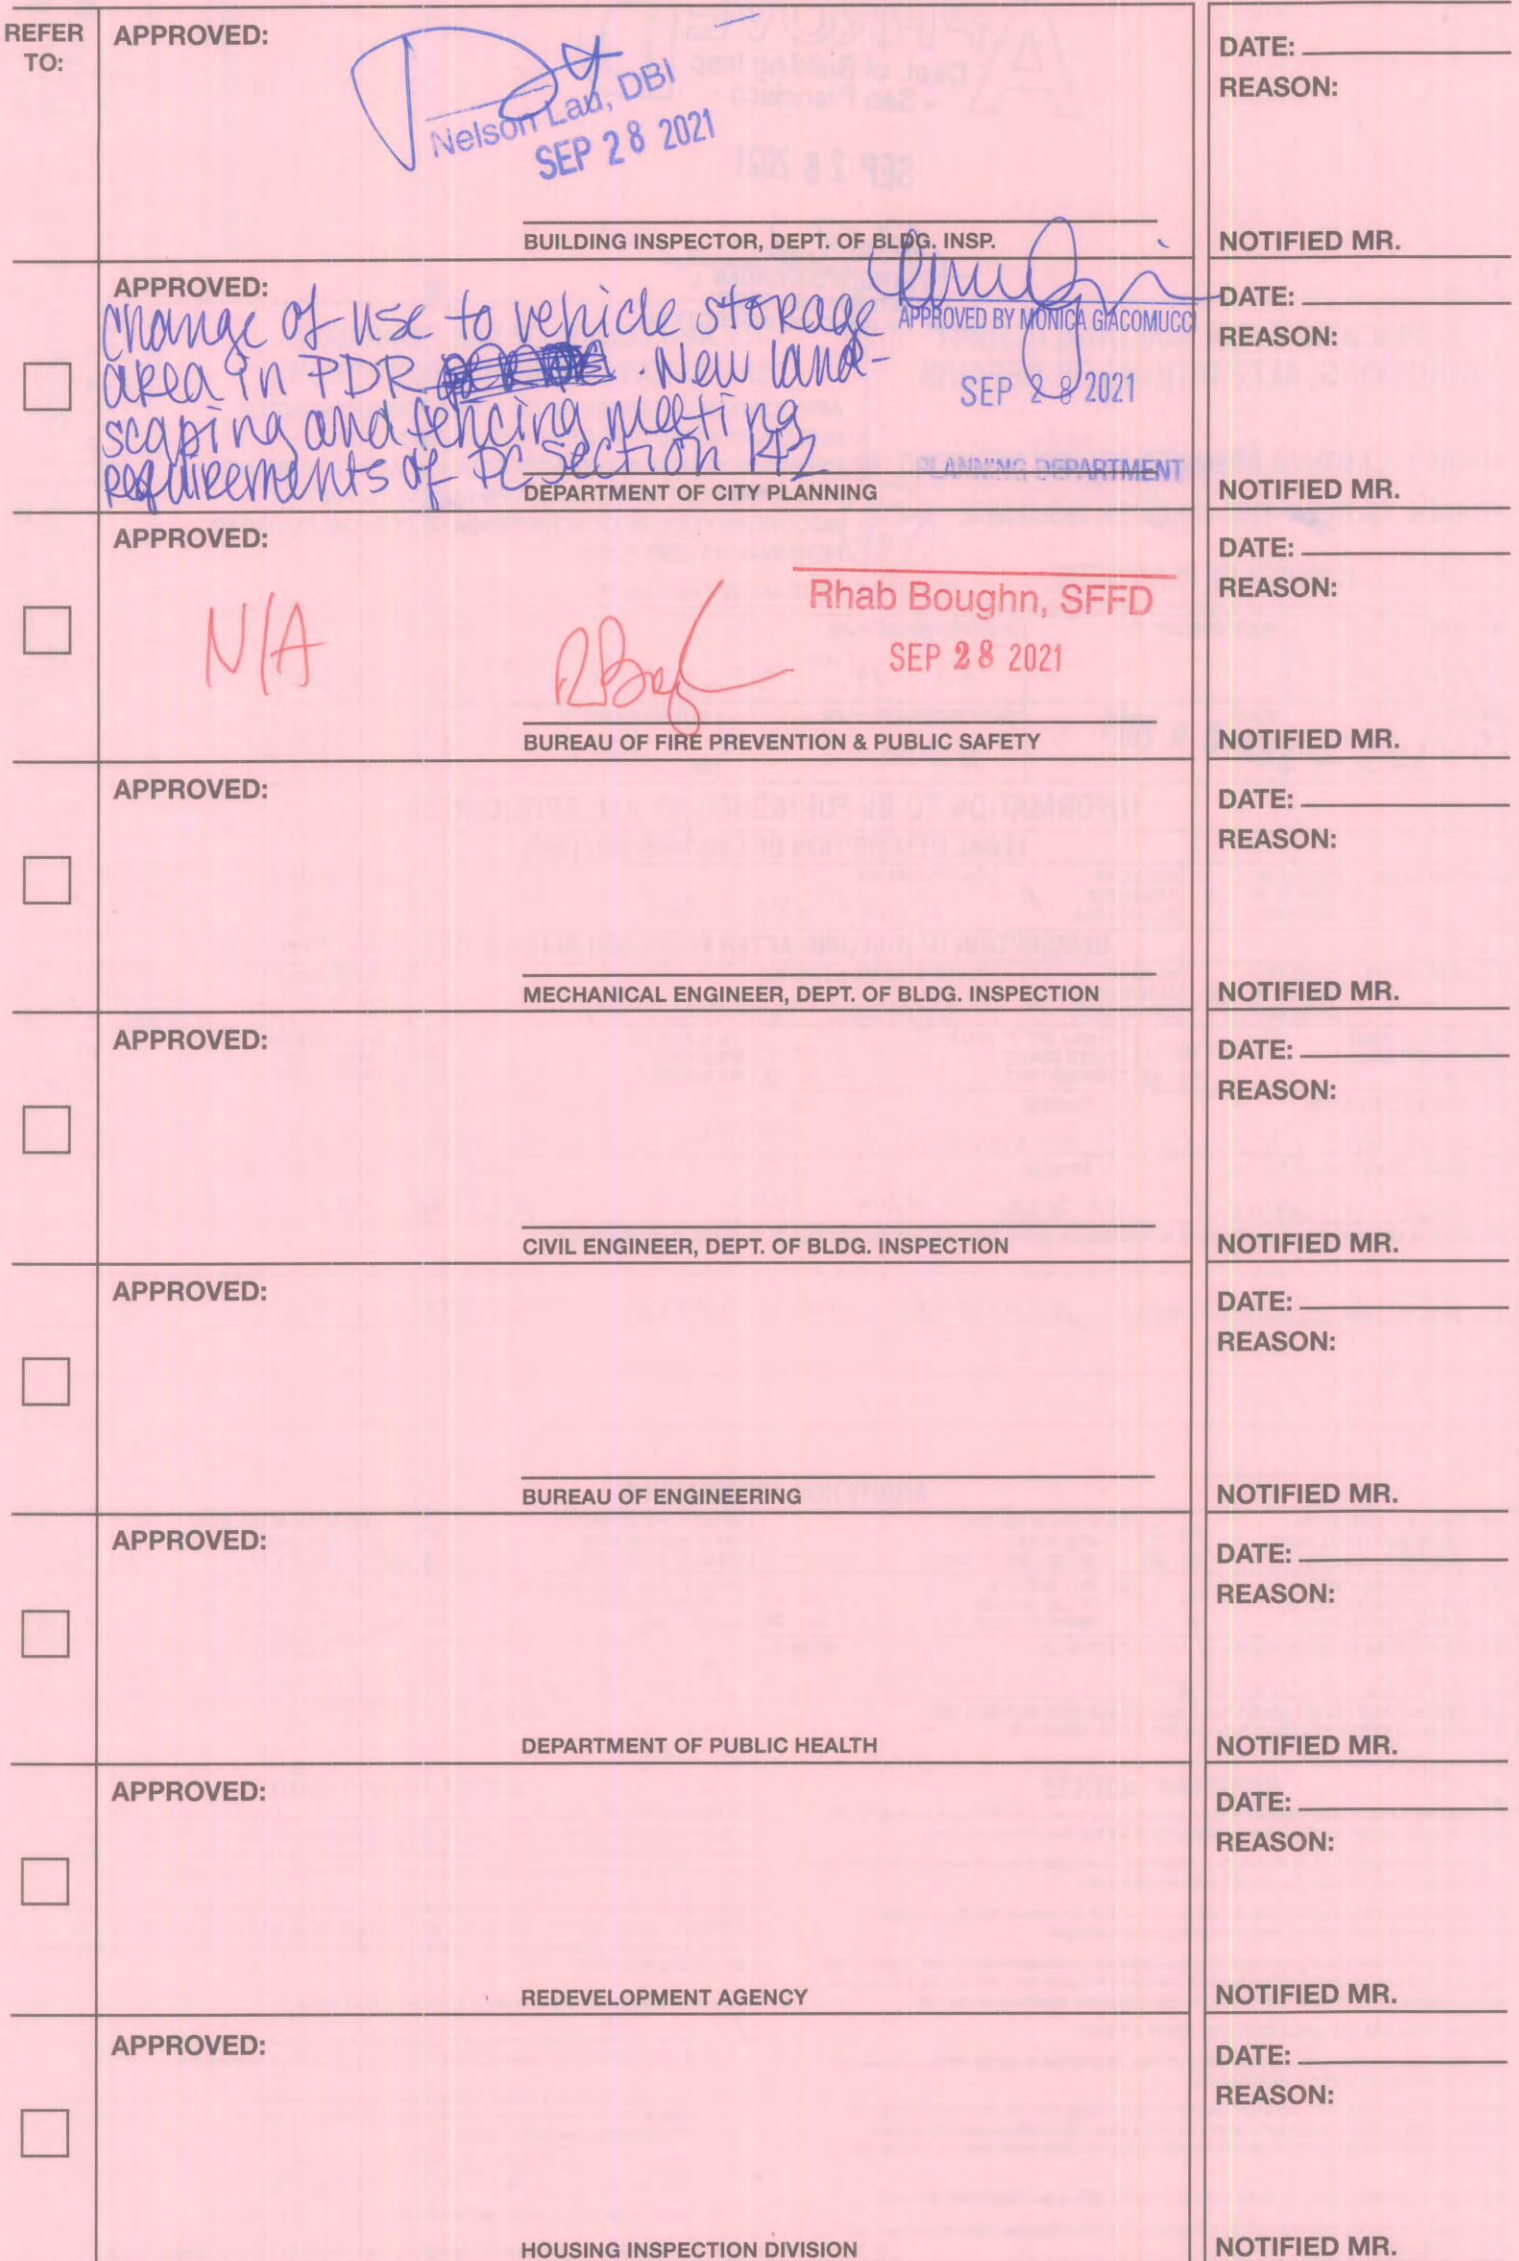 REFER
TO:
APPROVED:
Nelson Lau, DBI
SEP 28 2021
BUILDING INSPECTOR, DEPT. OF BLDG. INSP.
DATE:
REASON:
NOTIFIED MR.
APPROVED:
Change of use to vehicle storage
area in PDR . New land-
scaping and fencing meeting
requirements of PC Section 142
APPROVED BY MONICA GIACOMUCCI
SEP 28 2021
PLANNING DEPARTMENT
DEPARTMENT OF CITY PLANNING
DATE:
REASON:
NOTIFIED MR.
APPROVED:
N/A
Rhab Boughn, SFFD
SEP 28 2021
BUREAU OF FIRE PREVENTION & PUBLIC SAFETY
DATE:
REASON:
NOTIFIED MR.
APPROVED:
MECHANICAL ENGINEER, DEPT. OF BLDG. INSPECTION
DATE:
REASON:
NOTIFIED MR.
APPROVED:
CIVIL ENGINEER, DEPT. OF BLDG. INSPECTION
DATE:
REASON:
NOTIFIED MR.
APPROVED:
BUREAU OF ENGINEERING
DATE:
REASON:
NOTIFIED MR.
APPROVED:
DEPARTMENT OF PUBLIC HEALTH
DATE:
REASON:
NOTIFIED MR.
APPROVED:
REDEVELOPMENT AGENCY
DATE:
REASON:
NOTIFIED MR.
APPROVED:
HOUSING INSPECTION DIVISION
DATE:
REASON:
NOTIFIED MR.